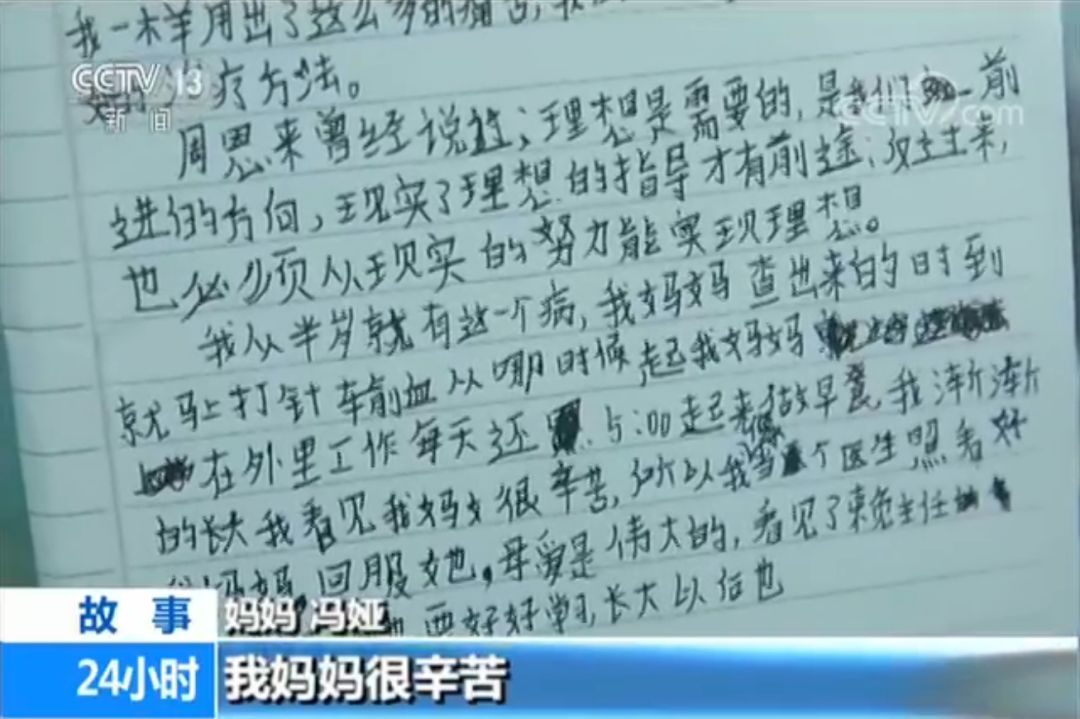 我一样用出了这么多的痛苦,我
治疗方法。
周恩来曾经说过:理想是需要的,是我们前
进的方向,现实了理想的指导才有前途;反过来,
也必须从现实的努力能实现理想。
我从半岁就有这一个病,我妈妈查出来的时到
就马上打针车前血从哪时候起我妈妈
在外里工作每天还5:00起来做早餐,我渐渐
的长大我看见我妈妈很辛苦,所以我想当个医生照看好
妈妈,回服她,母爱是伟大的,看见了赖主任
要好好学习,长大以后也
CCTV 13
新闻
CCTV.com
故事
24小时
妈妈 冯娅
我妈妈很辛苦